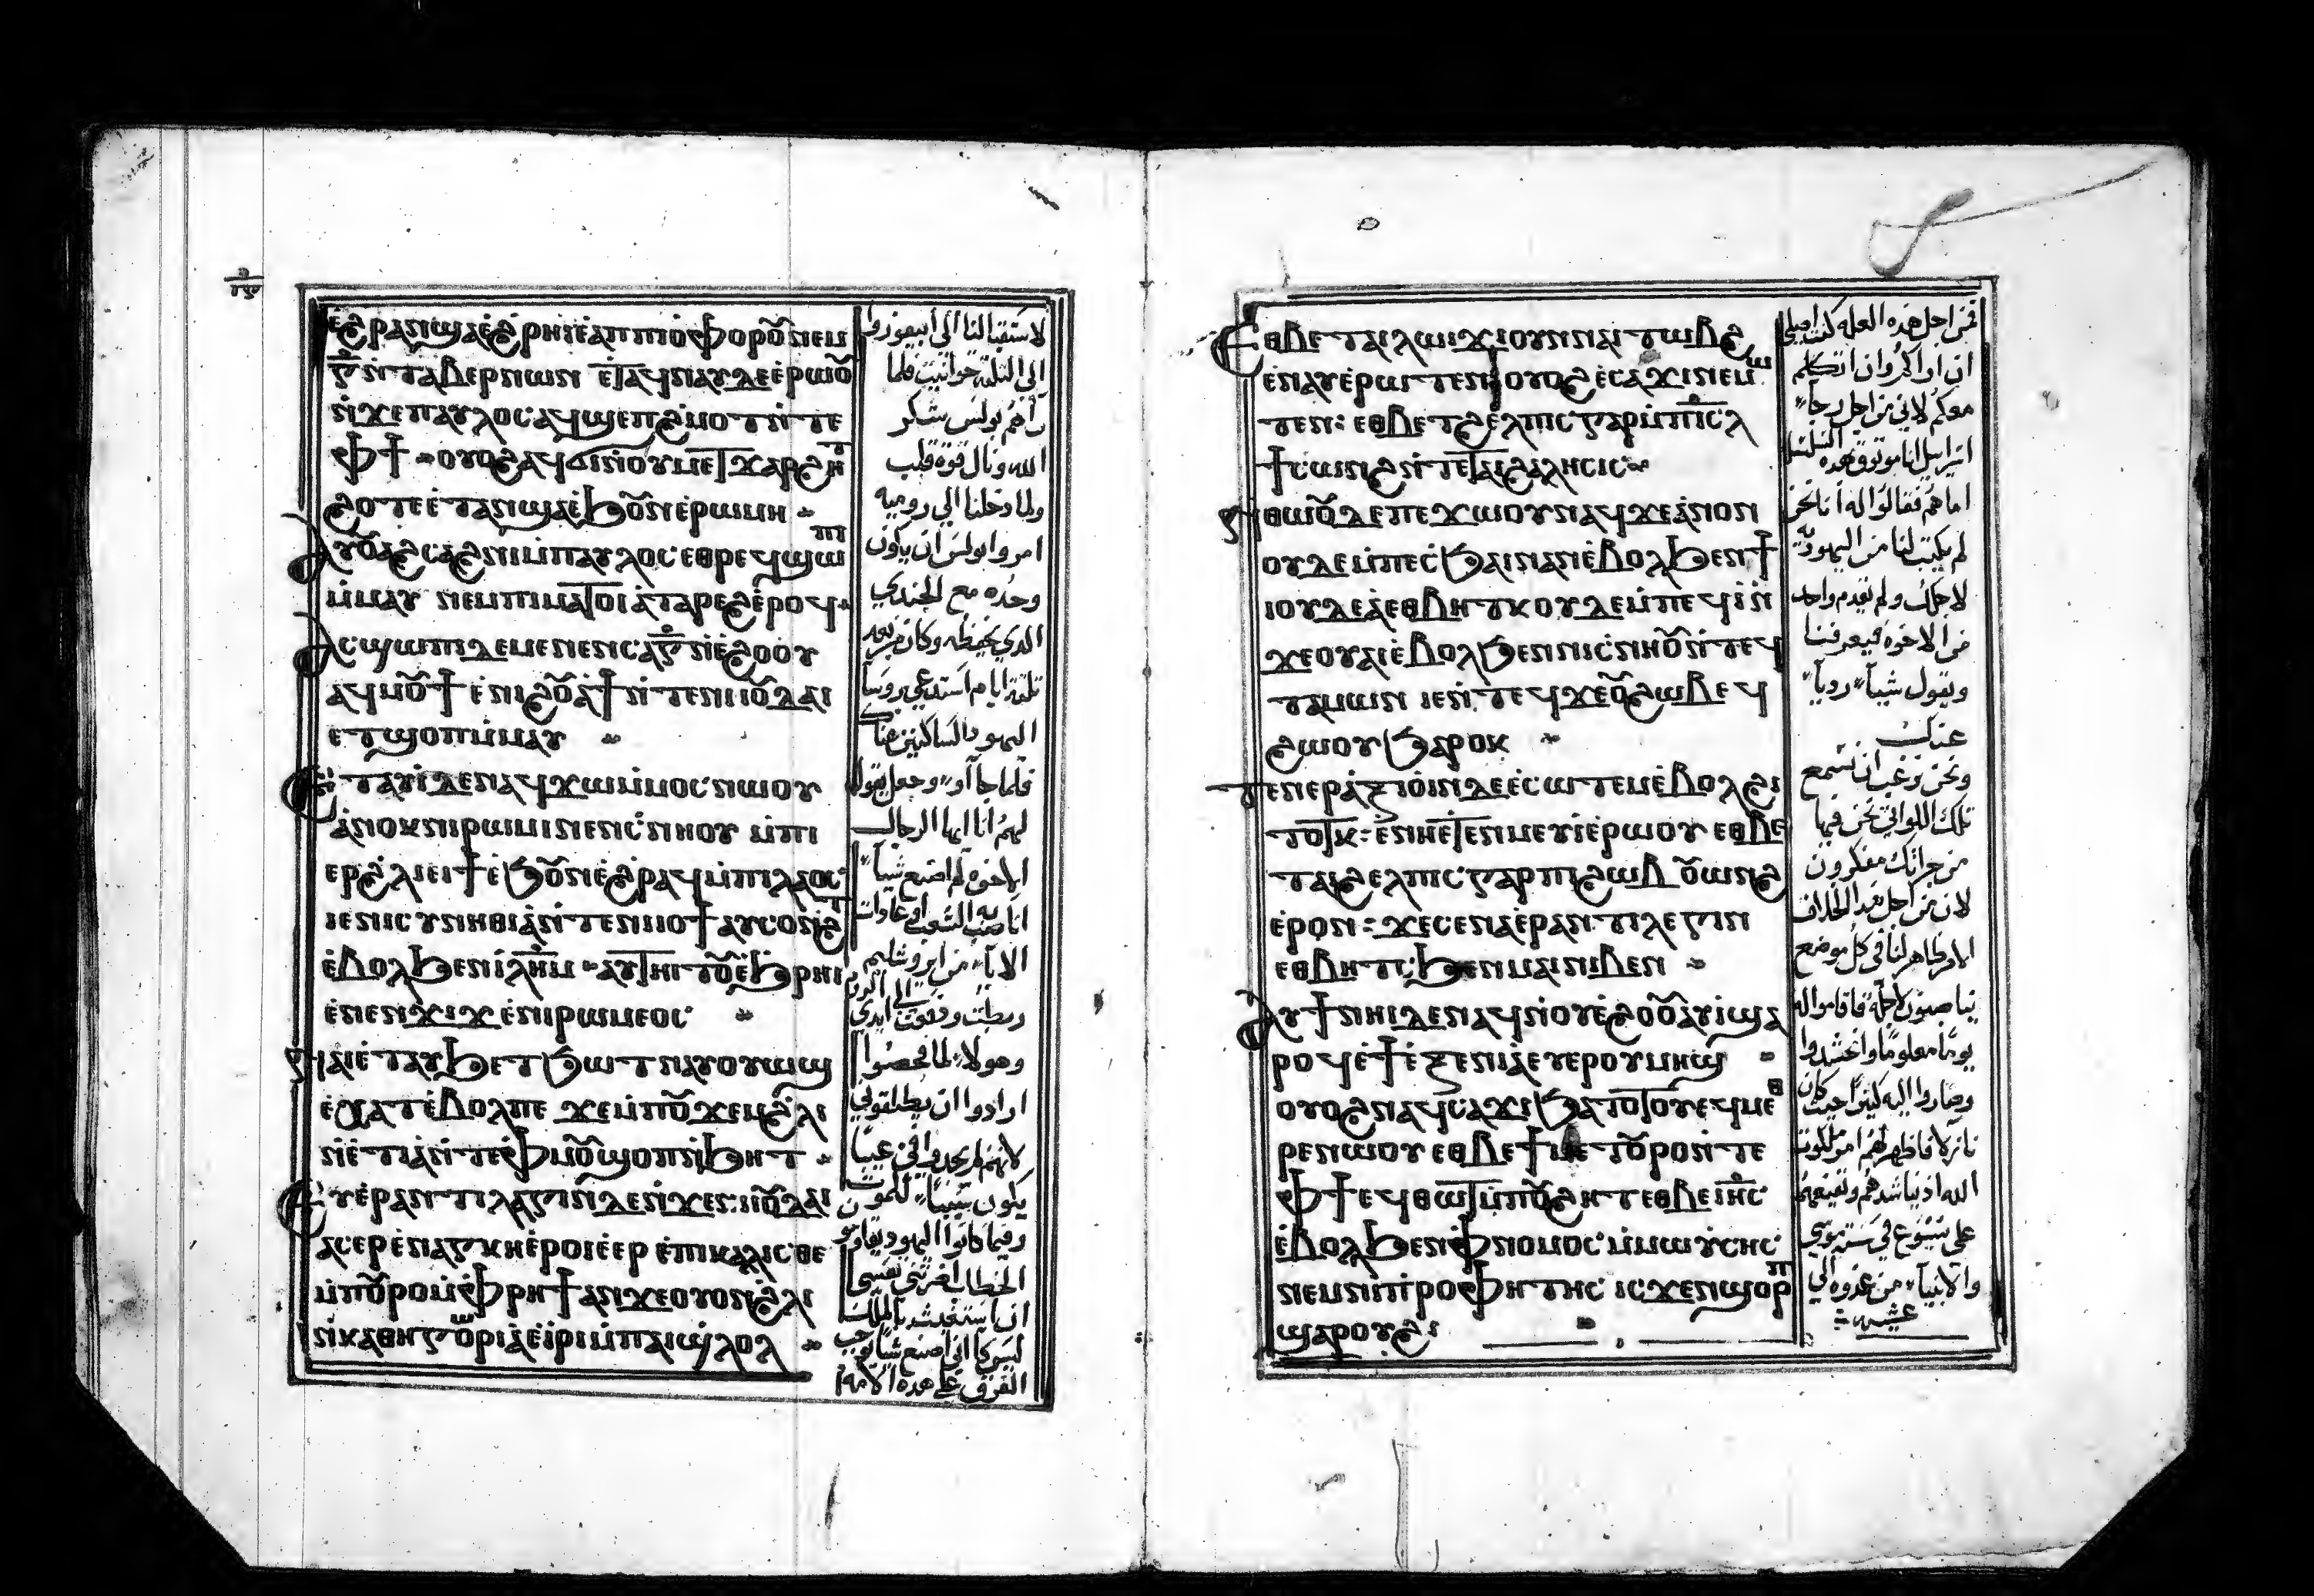 ⲉϩⲣⲁⲛ ϣⲁ ⲉϩⲣⲏⲓ ⲉⲁⲡⲡⲓⲟⲫⲟⲣⲟⲩ ⲛⲉⲙ
ⲅ̅ ⲛⲧⲁⲃⲉⲣⲛⲱⲛ ⲉⲧⲁϥⲛⲁⲩ ⲇⲉ ⲉⲣⲱⲟⲩ
ⲛϫⲉ ⲡⲁⲩⲗⲟⲥ ⲁϥϣⲉⲡϩⲙⲟⲧ ⲛⲧⲉ
ⲫϯ ⲟⲩⲟϩ ⲁϥϭⲓ ⲛⲟⲩⲙⲉⲧϫⲁⲣϩⲏⲧ
ϩⲟⲧⲉ ⲉⲧⲁⲛϣⲉ ⲉϧⲟⲩⲛ ⲉⲣⲱⲙⲏ
ⲁⲩⲟⲩⲁϩⲥⲁϩⲛⲓ ⲙⲡⲁⲩⲗⲟⲥ ⲉⲑⲣⲉϥϣⲱⲡ
ⲙⲙⲁⲩ ⲛⲉⲙ ⲡⲓⲙⲁⲧⲟⲓ ⲉⲧⲁⲣⲉϩ ⲉⲣⲟϥ
ⲁⲥϣⲱⲡⲓ ⲇⲉ ⲙⲉⲛⲉⲛⲥⲁ ⲅ̅ ⲛⲉϩⲟⲟⲩ
ⲁϥⲙⲟⲩϯ ⲉⲛⲓϩⲟⲩⲁϯ ⲛⲧⲉ ⲛⲓⲓⲟⲩⲇⲁⲓ
ⲉⲧϣⲟⲡ ⲙⲙⲁⲩ
ⲉⲧⲁⲩⲓ ⲇⲉ ⲛⲁϥϫⲱ ⲙⲙⲟⲥ ⲛⲱⲟⲩ
ⲁⲛⲟⲕ ⲛⲓⲣⲱⲙⲓ ⲛⲉⲛⲥⲛⲏⲟⲩ ⲙⲡⲓ
ⲉⲣϩⲗⲓ ⲉⲓϯ ⲉϧⲟⲩⲛ ⲉϩⲣⲁϥ ⲙⲡⲓⲗⲁⲟⲥ
ⲓⲉ ⲛⲓⲥⲩⲛⲏⲑⲓⲁ ⲛⲧⲉ ⲛⲓⲓⲟϯ ⲁⲩⲥⲟⲛϩⲧ
ⲉⲃⲟⲗ ϧⲉⲛ ⲓⲗⲏⲙ ⲁⲩⲧⲏⲓⲧⲟⲩ ⲉϧⲣⲏⲓ
ⲉⲛⲉⲛϫⲓϫ ⲉⲛⲓⲣⲱⲙⲉⲟⲥ
ⲛⲁⲓ ⲉⲧⲁⲩϧⲉⲧϧⲱⲧ ⲛⲁⲩⲟⲩⲱϣ
ⲉⲭⲁⲧ ⲉⲃⲟⲗ ⲡⲉ ϫⲉ ⲙⲡⲟⲩϫⲉⲙ ϩⲗⲓ
ⲛⲉⲧⲓⲁ ⲛⲧⲉ ⲫⲙⲟⲩ ϣⲟⲡ ⲛϧⲏⲧ
ⲉⲩⲉⲣⲁⲛⲧⲓⲗⲁⲅⲓⲛ ⲇⲉ ⲛϫⲉ ⲛⲓⲓⲟⲩⲇⲁⲓ
ⲁⲥⲉⲣ ⲉⲛⲁⲅⲕⲏ ⲉⲣⲟⲓ ⲉⲉⲣ ⲉⲡⲓⲕⲁⲗⲓⲥⲑⲉ
ⲙⲡⲟⲩⲣⲟ ⲙⲫⲣⲏϯ ⲁⲛ ϫⲉ ⲟⲩⲟⲛ ϩⲗⲓ
ⲛⲕⲁⲑⲏⲅⲱⲣⲓⲁ ⲉⲓⲣⲓ ⲙⲡⲁⲓϣⲗⲟⲗ
لاستقبالنا الى ابيفوروا
الى التلتة حوانيت فلما
رآهم بولس شكر
الله ونال قوة قلب
ولما دخلنا الى روميه
امروا بولس ان يكون
وحده مع الجندي
الدي يحفظه وكان من بعد
تلتة ايام استدعى روسا
اليهود الساكنين هناك
فلما جآاو وجعل يقول
لهم انا ايها الرجال
الاخوه لم اصنع شياً
اناصب الشعب او عاوات
الابآ من ايروشليم
ربطت ودفعت الى ايدي الروم
وهولا لما فحصوا
ارادوا ان يطلقوني
لانهم لم يجدوا في عيباً
يكون سبباً للموت
وفيما كانوا اليهود يقاومو
ان استغيث بالملك
ليس كاني اصنع شيا يوجب
القرف على هده الامه
ⲉⲑⲃⲉ ⲧⲁⲓⲗⲱⲓϫⲓ ⲟⲩⲛ ⲛⲁⲓⲧⲱⲃϩ
ⲉⲛⲁⲩ ⲉⲣⲱⲧⲉⲛ ⲟⲩⲟϩ ⲉⲥⲁϫⲓ ⲛⲉⲙⲱ
ⲧⲉⲛ: ⲉⲑⲃⲉ ⲧϩⲉⲗⲡⲓⲥ ⲅⲁⲣ ⲙⲡⲓⲥⲗ
ϯⲥⲱⲛϩ ⲛⲧⲉ ⲧⲁⲓϩⲁⲗⲏⲥⲓⲥ
ⲛⲑⲱⲟⲩ ⲇⲉ ⲡⲉϫⲱⲟⲩ ⲛⲁϥ ϫⲉ ⲁⲛⲟⲛ
ⲟⲩⲇⲉ ⲙⲡⲉⲥϧⲁⲓ ⲛⲁⲛ ⲉⲃⲟⲗ ϧⲉⲛ ϯ
ⲓⲟⲩⲇⲉⲁ ⲉⲑⲃⲏⲧⲕ ⲟⲩⲇⲉ ⲙⲡⲉϥⲓ ⲛ
ϫⲉ ⲟⲩⲁⲓ ⲉⲃⲟⲗ ϧⲉⲛ ⲛⲓⲥⲛⲏⲟⲩ ⲛⲧⲉϥ
ⲧⲁⲙⲱⲛ ⲓⲉ ⲛⲧⲉϥϫⲉ ⲟⲩϩⲱⲃ ⲉϥ
ϩⲱⲟⲩ ϧⲁⲣⲟⲕ
ⲧⲉⲛⲉⲣⲁⲝⲓⲟⲓⲛ ⲇⲉ ⲉⲥⲱⲧⲉⲙ ⲉⲃⲟⲗϩⲓ
ⲧⲟⲧⲕ: ⲉⲛⲏ ⲉⲧⲉⲛⲙⲉⲩⲓ ⲉⲣⲱⲟⲩ ⲉⲑⲃⲉ
ⲧⲁⲓϩⲉⲗⲡⲓⲥ ⲅⲁⲣ ⲡⲓϩⲱⲃ ⲟⲩⲱⲛϩ
ⲉⲣⲟⲛ: ϫⲉ ⲥⲉⲛⲁⲉⲣⲁⲛⲧⲓⲗⲉⲅⲓⲛ
ⲉⲑⲃⲏⲧⲥ ϧⲉⲛ ⲙⲁⲓ ⲛⲓⲃⲉⲛ
ⲁⲩϯⲛⲏⲓ ⲇⲉ ⲛⲁϥ ⲛⲟⲩⲉϩⲟⲟⲩ ⲁⲩⲓ ϣⲁ
ⲣⲟϥ ⲉϯⲉⲝⲉⲛⲓⲁ ⲉⲩⲉⲣ ⲟⲩⲙⲏϣ
ⲟⲩⲟϩ ⲛⲁϥⲥⲁϫⲓ ϧⲁⲧⲟⲧⲟⲩ ⲉϥⲙⲉⲑ
ⲣⲉ ⲛⲱⲟⲩ ⲉⲑⲃⲉ ϯⲙⲉⲧⲟⲩⲣⲟ ⲛⲧⲉ
ⲫϯ ⲉϥⲑⲱⲧ ⲙⲡⲟⲩϩⲏⲧ ⲉⲑⲃⲉ ⲓⲏⲥ
ⲉⲃⲟⲗ ϧⲉⲛ ⲫⲛⲟⲙⲟⲥ ⲙⲙⲱⲩⲥⲏⲥ
ⲛⲉⲙ ⲛⲓⲡⲣⲟⲫⲏⲧⲏⲥ ⲓⲥϫⲉⲛ ϣⲟⲣⲡ
ϣⲁ ⲣⲟⲩϩⲓ
فمن اجل هده العله كنت اصلي
ان اراكم وان اتكلم
معكم لاني من اجل رجآ
اسراييل انا موتوق بهده السلسل
اما هم فقالوا له انا نحن
لم يكتب لنا من اليهودية
لاجلك ولم يقدم واحد
من الاخوه فيعرفنا
ويقول شيآ ردياً
عنك
ونحن نرغب ان نسمع
تلك اللواتي نحن فيها
من جراتك مفكرون
لان من اجل هدا الخلاف
الامر ظاهر لنا في كل موضع
يناصبون لاجله فاقاموا له
يوماً معلوماً واحتشدوا
وصاروا اليه كتيراً حيت كان
نازلا فاظهر لهم امر ملكوت
الله اد يناشدهم ويقنعهم
على يسوع في سنة موسى
والانبيآ من غدوه الى
عشيه